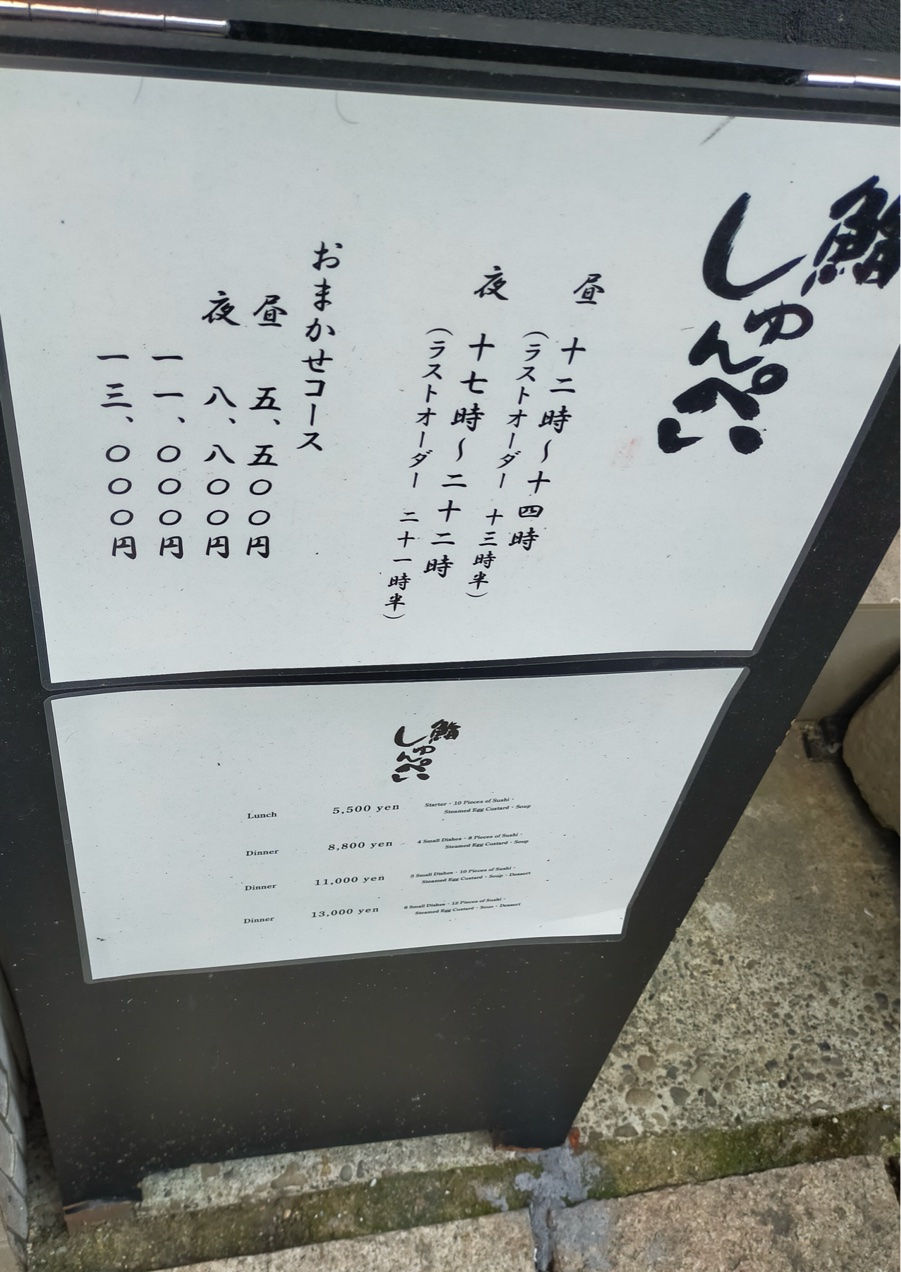 鮨
しゅんぺい
昼 十二時〜十四時
(ラストオーダー 十三時半)
夜 十七時〜二十二時
(ラストオーダー 二十一時半)
おまかせコース
昼 五、五〇〇円
夜 八、八〇〇円
一一、〇〇〇円
一三、〇〇〇円
鮨
しゅんぺい
Lunch 5,500 yen Starter · 10 Pieces of Sushi ·
Steamed Egg Custard · Soup
Dinner 8,800 yen 4 Small Dishes · 8 Pieces of Sushi ·
Steamed Egg Custard · Soup
Dinner 11,000 yen 5 Small Dishes · 10 Pieces of Sushi ·
Steamed Egg Custard · Soup · Dessert
Dinner 13,000 yen 6 Small Dishes · 12 Pieces of Sushi ·
Steamed Egg Custard · Soup · Dessert